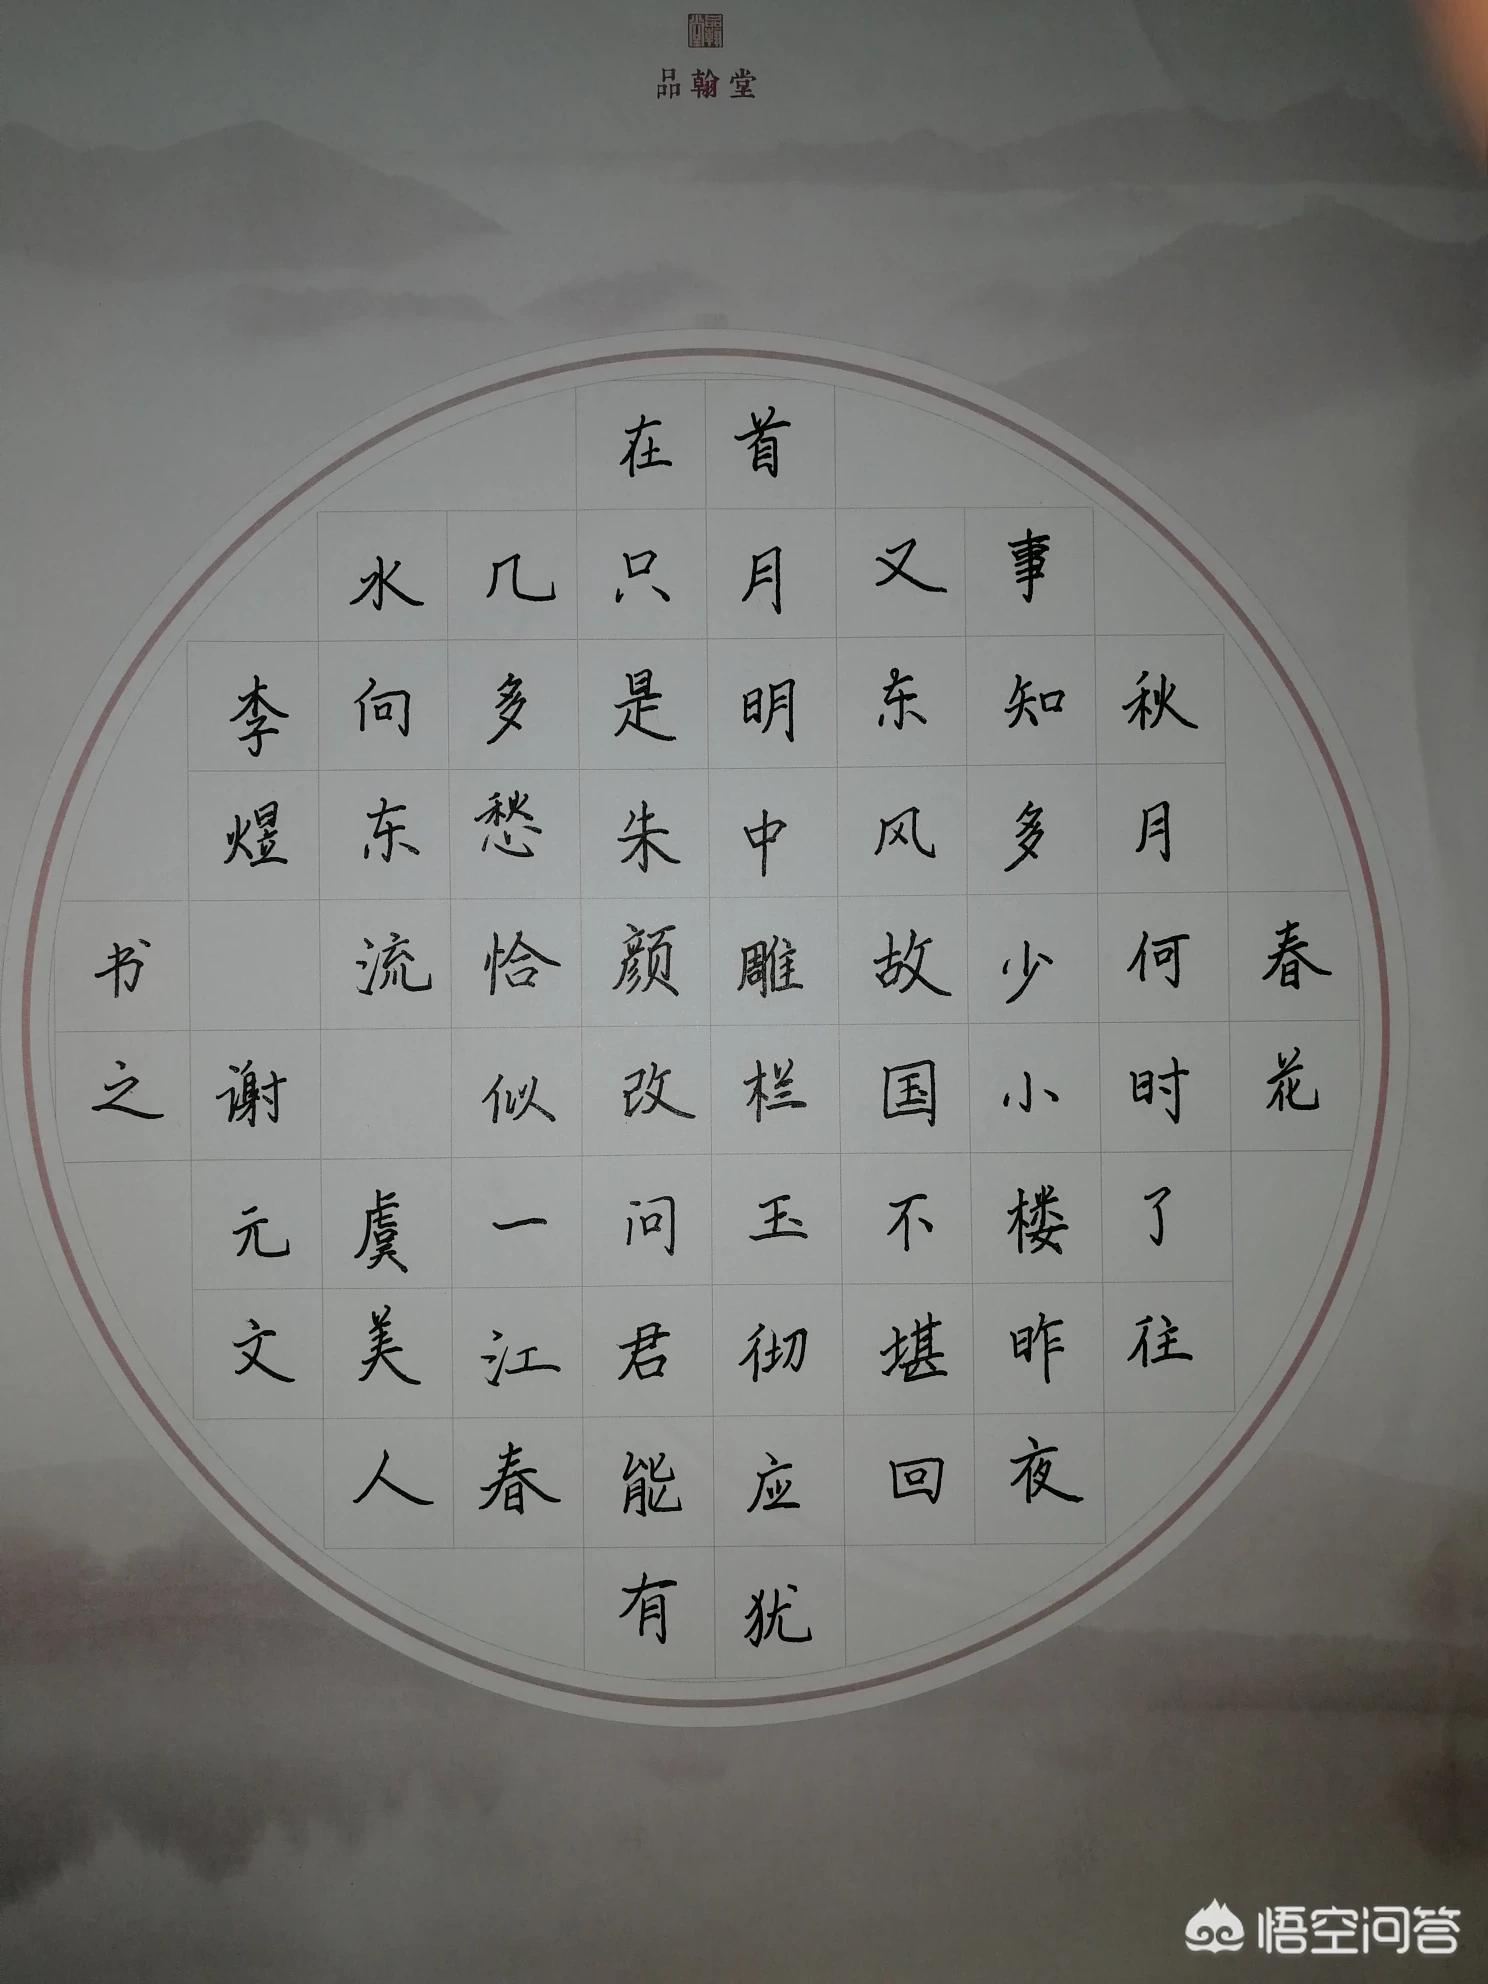 品翰堂
春花
秋月何时了往
事知多少小楼昨夜
又东风故国不堪回
首月明中雕栏玉彻应犹
在只是朱颜改问君能有
几多愁恰似一江春
水向东流 虞美人
李煜 谢元文
书之
悟空问答